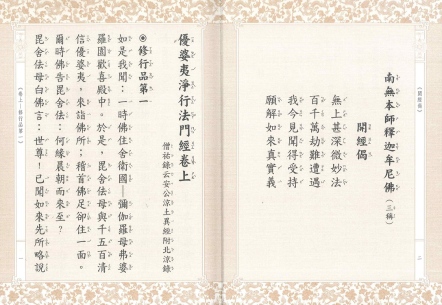 南無本師釋迦牟尼佛（三稱）
開經偈
無上甚深微妙法
百千萬劫難遭遇
我今見聞得受持
願解如來真實義
（開經偈）
優婆夷淨行法門經卷上
僧祐錄云安公涼土異經附北涼錄
◎修行品第一
如是我聞：一時佛住舍衛國—彌伽羅母弗婆
羅園歡喜殿中。於是，毘舍佉母與千五百清
信優婆夷，來詣佛所；稽首佛足卻住一面。
爾時佛告毘舍佉：何緣晨朝而來至？
毘舍佉母白佛言：世尊！已聞如來先所略說
（卷上—修行品第一）
一